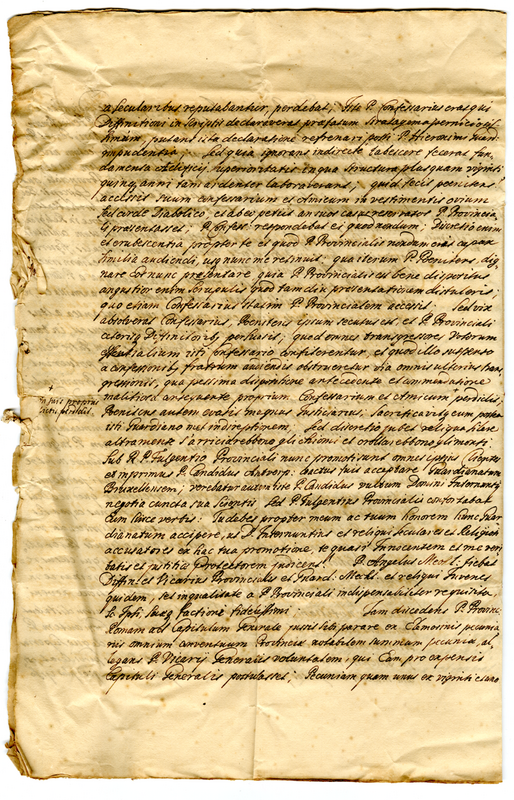 a secularibus reputabantur, perdebat; Iste P. Confessarius erat qui
Diffinitioni in scriptis declaraverat prefatum stratagema
putans ista declaratione refrenari posse P. Hieronimi
impudentia; Sed quia ignorans indirecte labescere fecerat fun,
damenta Aedificij superioritatis in qua structura plusquam viginti
quinq anni tam ardenter laboraverant, quid fecit poenitens
accessit suum confessarium et Amicum in vestimentis ovium
corde Diabolico, et ab eo petiit an suos casus reservatos P. Provincia,
li presentasset; P. Confess. respondebat et quod nondum; Discretio enim
et erubescentia propter te et quod P. Provincialis nondum erat capax
similia audiendi, usq nunc me retinuit, qua iterum P. Poenitens, dig,
nare eos nunc presentare quia P. Provincialis est bene dispositus
angustior enim scrupulis quod tam diu presentationem distuleris;
quo etiam Confessarius statim P. Provincialem accessit. Sed vix
absolverat Confessarius, Poenitens ipsum secutus est, et P. Provinciali
caeterisq Definitoribus persuasit, quod omnes transgressores Votorum
essentialium isti Confessario confiterentur, et quod illo suspenso
a confessionib, fratrum audiendis obstrueretur via omnis ulterius trans,
gressionis, qua pessima dispositione antecedente et commensatione
malitiosa subsequente proprium Confessarium et Amicum perdidit;
+
in suis propriis
Poenitens autem evasit magnus Justiciarius, sacrificavitq eum
isti Guardiano
altramente s'arricidrebbono gli chiomi et crollarebbono gli menti.
Sub R. P. Fulgentio Provinciali nunc promoti sunt omnes ipsius Clientes
et inprimis P. Candidus Antverp. coactus fuit acceptare Guardianatum
Bruxellensem; verebatur autem iste P. Candidus vultum Domini Internuntij
negotia cuncta sua scientis sed P. Fulgentius Provincialis confortabat
Eum hisce vertis: Tu debes propter meum ac tuum honorem hunc Guar
dianatum accipere, ut D. Internuntius et reliqui seculares et Religiosi
accusatores ex hac tua promotione, te quasi Innocentem et me veri
tatis et justitiae protectorem judicent. P. Angelus Mechl. fiebat
Diffin. et Vicarius Provincialis et Guard. Mechl. et reliqui Iurenes
quidem, sed in qualitate a P. Provinciali indispensabiliter requisita,
S. Inti. suaeq factioni fidelissimi: Iam discedens P. Provinc.
Romam ad Capitulum Generale jussit sibi parare ex Eleemosinis pecunia
riis omnium conventuum Provinciae notabilem summam pecuniae, al,
legans P. Vicarij Generalis voluntatem, qui Eam pro expensis
Capituli Generalis postulasset; Pecuniam quam unus ex viginti